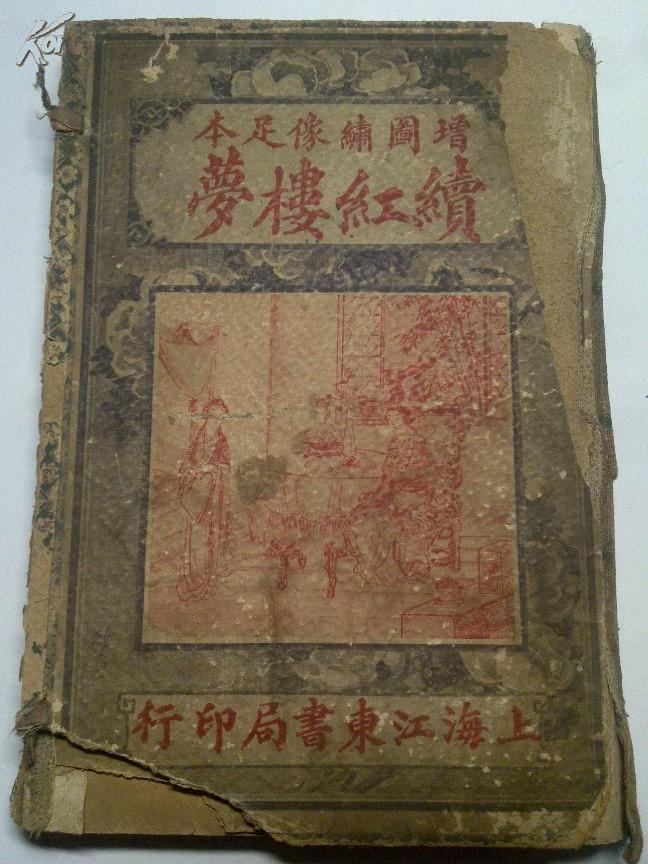 增圖繡像足本
續紅樓夢
上海江東書局印行